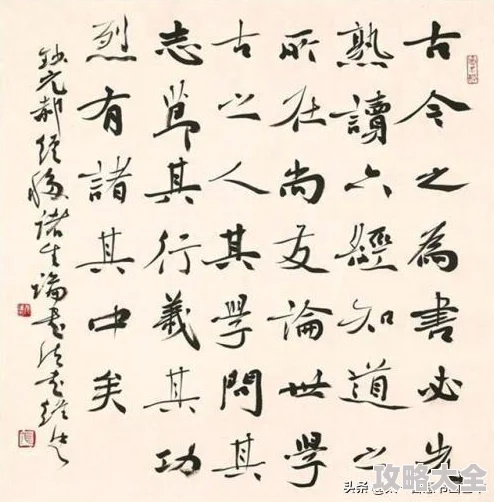 古今之為書必先
熟讀六經知道之
所在尚友論世學
古之人其學問其
志節其行義其功
烈有諸其中矣
元郝經移諸生論書法書
头条
攻略大全